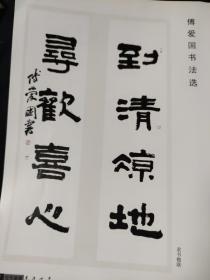 傅爱国书法选
到清凉地
寻欢喜心
傅爱国书
隶书楹联